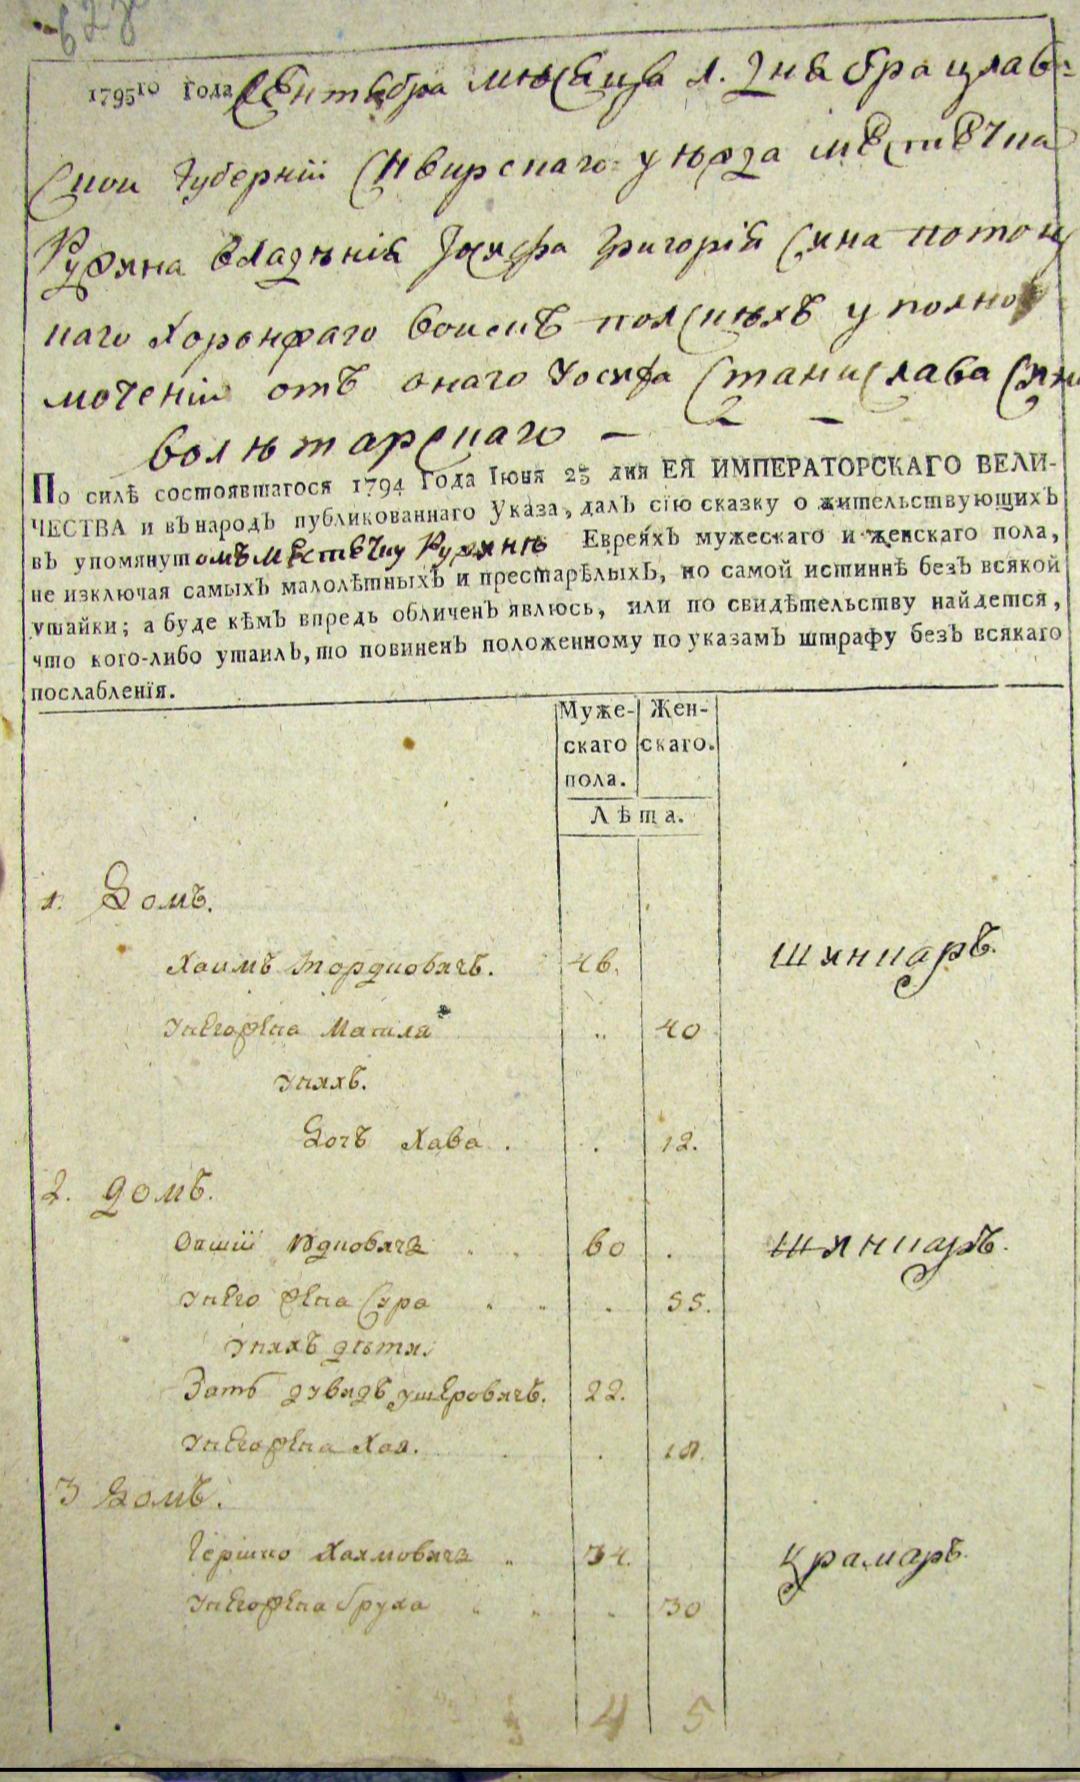 1795го года Сентября месяца 1. дня брацлав-
ской губернии Сквирскаго уезда местечка
Ружина владения Иосифа Григория сина потом
наго Хоронжаго воискъ полскихъ уполно
мочении отъ онаго Иосифа Станислава
По силѣ состоявшагося 1794 года Iюня 23 дня ЕЯ ИМПЕРАТОРСКАГО ВЕЛИ-
ЧЕСТВА и въ народъ публикованнаго Указа, далъ сїю сказку о жительствующихъ
въ упомянутомъ местечку Ружинѣ Евреяхъ мужескаго и женскаго пола,
не изключая самыхъ малолѣтныхъ и престарѣлыхъ, по самой истиннѣ безъ всякой
утайки; а буде кѣмъ впредь обличенъ явлюсь, или по свидѣтельству найдется,
что кого-либо утаилъ, то повиненъ положенному по указамъ штрафу безъ всякаго
послабленїя.
Муже- Жен-
скаго скаго.
пола.
Лѣта.
1. Домъ.
Хаимъ Мордковичъ. 46. Шинкаръ.
Унего жена Маниля 40
Унихъ.
Дочъ Хава . . 12.
2. Домъ.
Овший Идковичъ 60 . Шинкаръ.
Унего жена Сура . 55.
Унихъ дѣти.
Зать дувидъ ушеровичъ. 22.
Унего жена Хая. . 18.
3 Домъ.
Гершко Хаимовичъ 34. Крамаръ.
Унего жена Бруха . 30
4 5